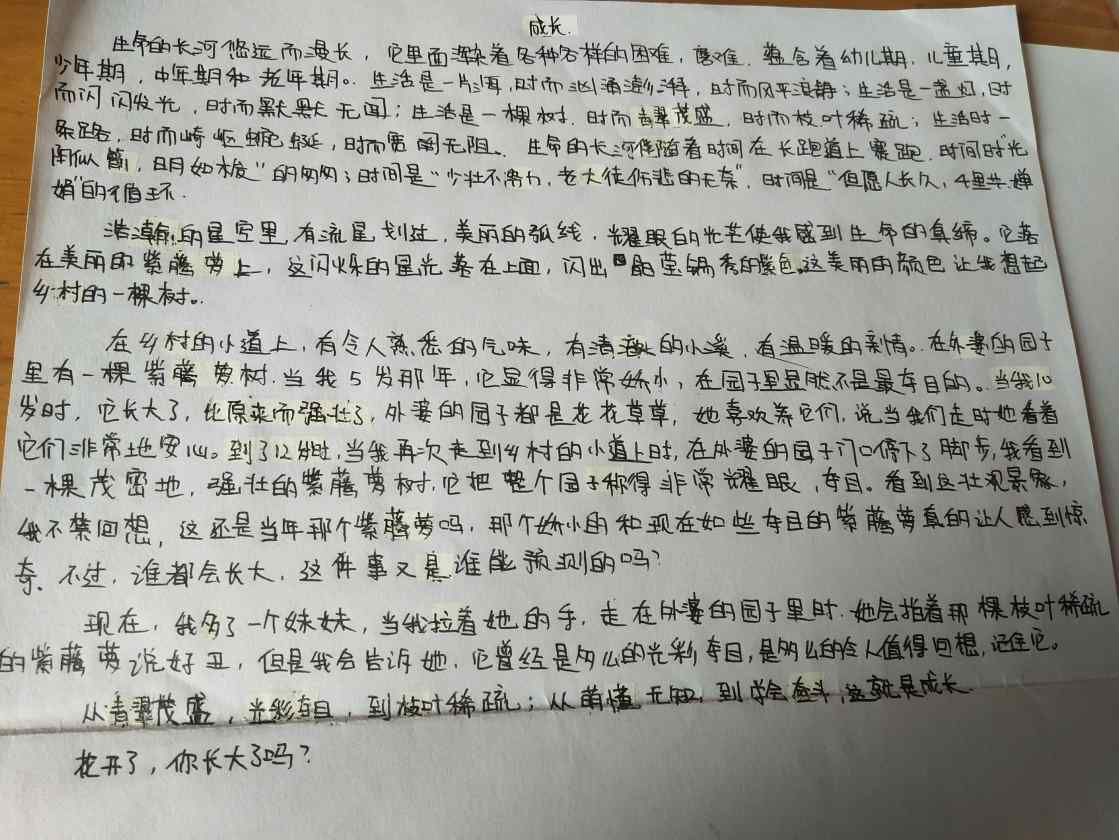 成长.
生命的长河悠远而漫长，它里面渗染着各种各样的困难，磨难.蕴含着幼儿期.儿童其月，
少年期，中年期和老年期。.生活是一片海，时而汹涌澎湃，时而风平浪静；生活是一盏灯，时
而闪闪发光，时而默默无闻；生活是一棵树.时而青翠茂盛，时而枝叶稀疏；生活时一
条路，时而崎岖蜿蜒，时而宽阔无阻.生命的长河伴随着时间在长跑道上赛跑.时间时“光
阴似箭，日月如梭”的匆匆；时间是“少壮不努力，老大徒伤悲的无奈”，时间是“但愿人长久，千里共婵
娟”的循环.
浩瀚的星空里,有流星划过，美丽的弧线，耀眼的光芒使我感到生命的真缔。它落
在美丽的紫藤萝上，这闪烁的星光落在上面，闪出的紫色。这美丽的颜色让我想起
乡村的一棵树。.
在乡村的小道上，有令人熟悉的气味，有清澈的小溪，有温暖的亲情。.在外婆的园子
里有一棵紫藤萝树.当我5岁那年，它显得非常娇小，在园子里显然不是最夺目的。当我10
岁时，它长大了，比原来而强壮了，外婆的园子都是花花草草，她喜欢养它们，说当我们走时她看着
它们非常地安心。到了12岁时,当我再次走到乡村的小道上时,在外婆的园子门口停下了脚步,我看到
一棵茂密地，强壮的紫藤萝树.它把整个园子称得非常耀眼，夺目。看到这壮观景象，
我不禁回想，这还是当年那个紫藤萝吗，那个娇小的和现在如些夺目的紫藤萝真的让人感到惊
奇、不过，谁都会长大，这件事又是谁能预测的吗？
现在，我多了一个妹妹，当我拉着她的手，走在外婆的园子里时.她会指着那棵枝叶稀疏
的紫藤萝说好丑，但是我会告诉她，它曾经是多么的光彩夺目，是多么的令人值得回想，记住它。
从青翠茂盛，光彩夺目，到枝叶稀疏；从萌懂无知，到学会奋斗，这就是成长.
花开了，你长大了吗？